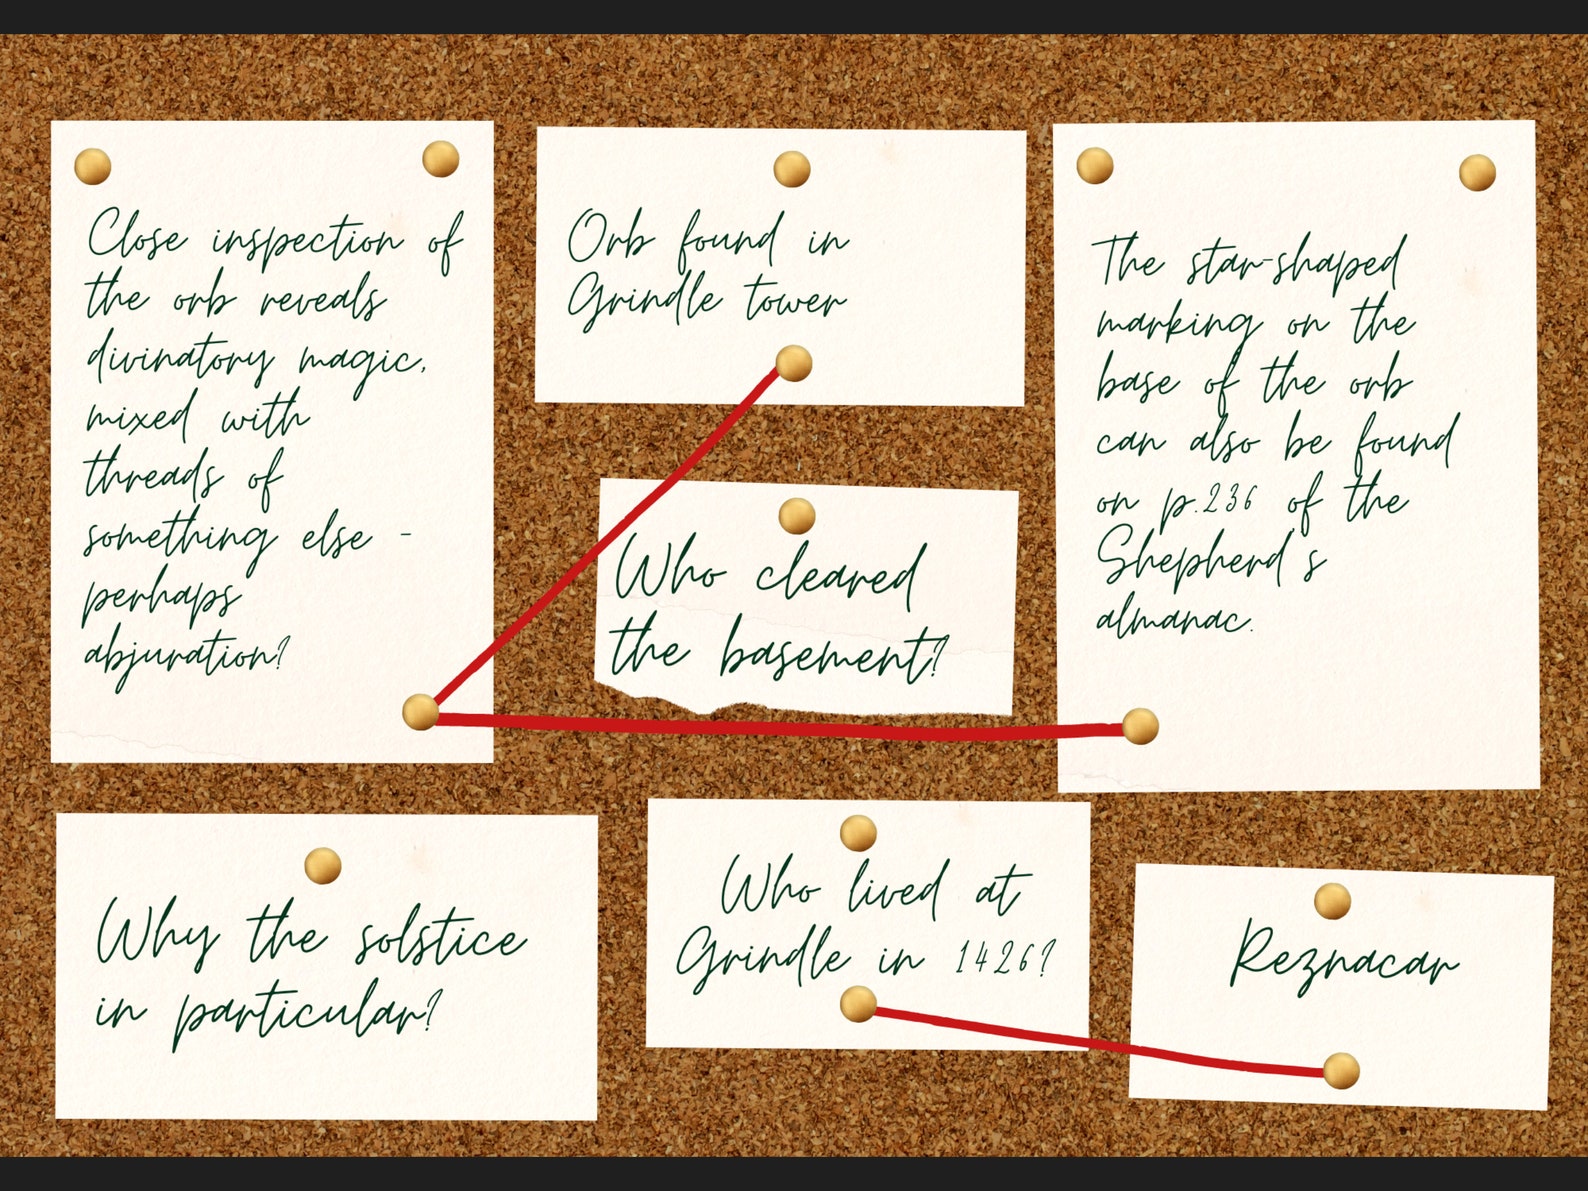 Close inspection of
the orb reveals
divinatory magic,
mixed with
threads of
something else -
perhaps
abjuration?
Orb found in
Grindle tower
Who cleared
the basement?
The star-shaped
marking on the
base of the orb
can also be found
on p.236 of the
Shepherd's
almanac.
Why the solstice
in particular?
Who lived at
Grindle in 1426?
Reznacar